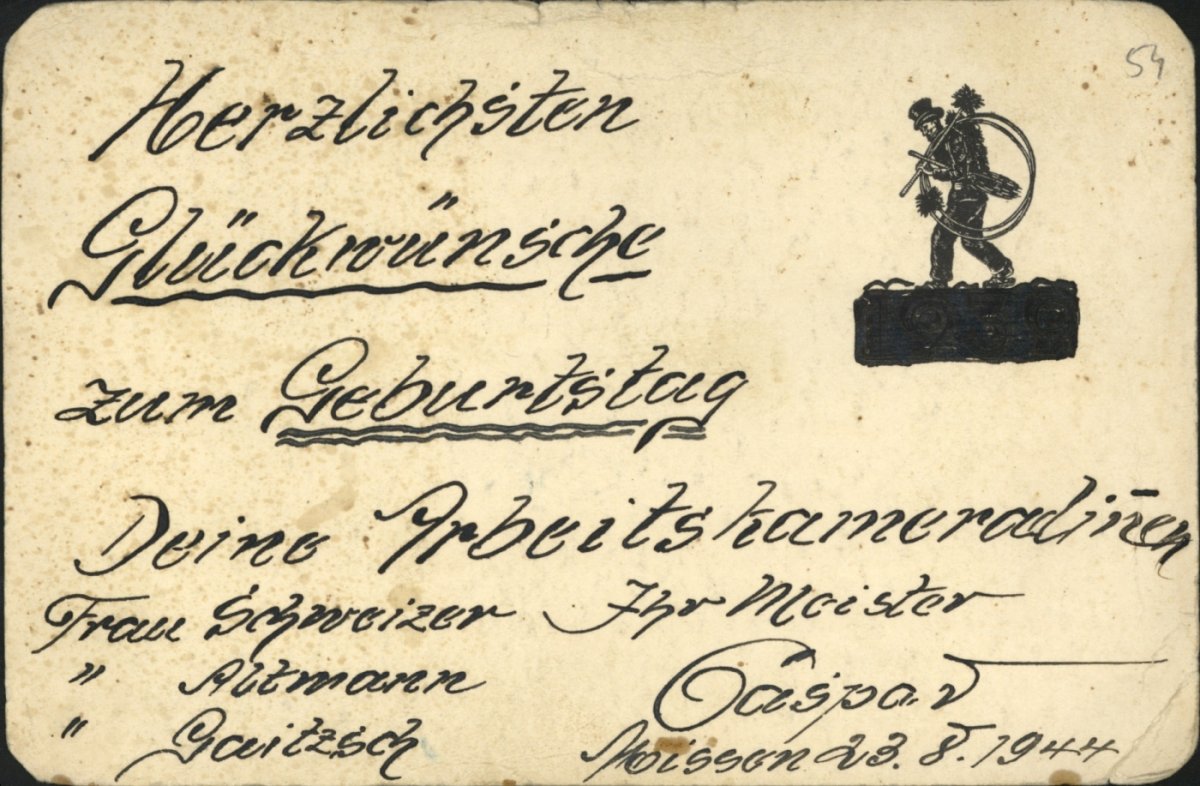 54
Herzlichsten
Glückwünsche
zum Geburtstag
Deine Arbeitskameradin̄en
Frau Schweizer Ihr Meister
" Altmann Caspar
" Gaitzsch Meissen 23. 8. 1944